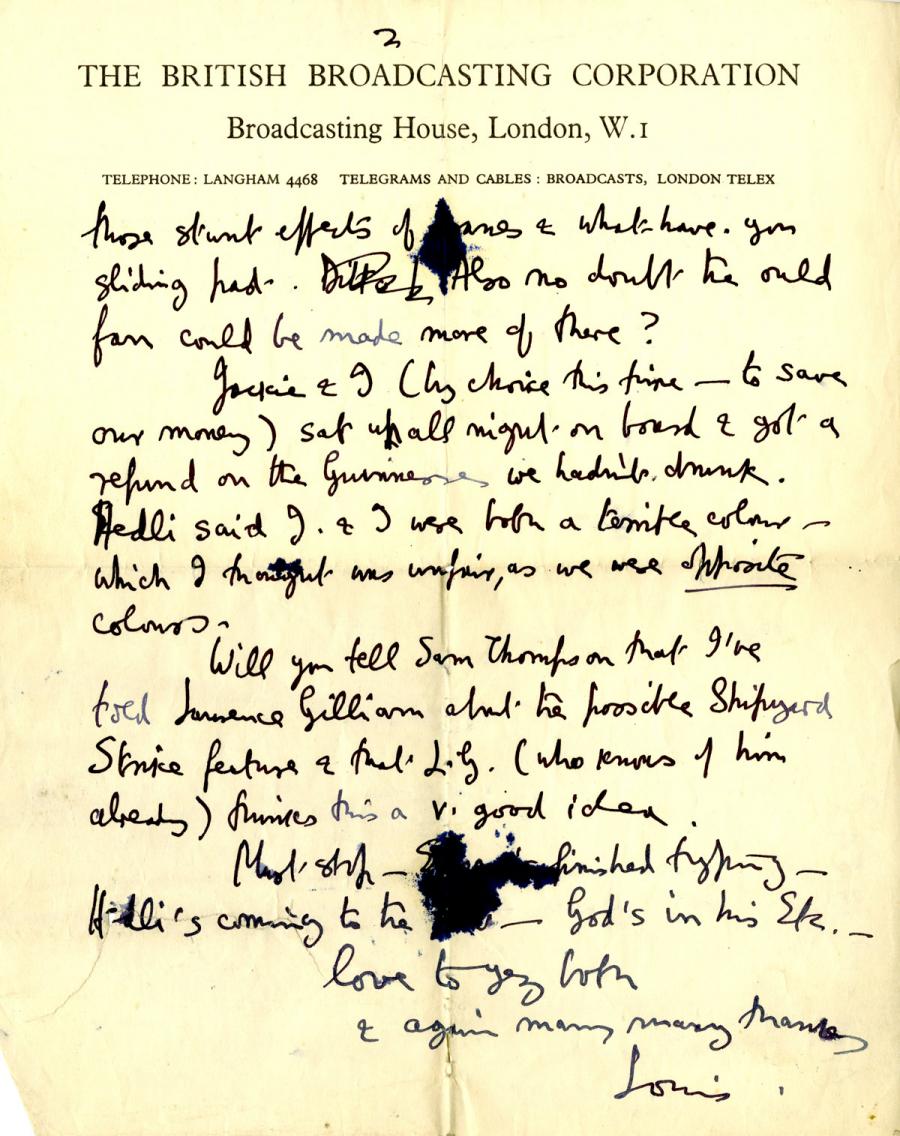 2
THE BRITISH BROADCASTING CORPORATION
Broadcasting House, London, W.1
TELEPHONE: LANGHAM 4468 TELEGRAMS AND CABLES: BROADCASTS, LONDON TELEX
those stunt effects of & what-have-you
sliding past. Also no doubt the ould
fan could be made more of there?
Jackie & I (by choice this time — to save
our money) sat up all night on board & got a
refund on the Guinnesses we hadn't drunk.
Hedli said J. & I were both a terrible colour —
which I thought was unfair, as we were opposite
colours.
Will you tell Sam Thompson that I've
told Laurence Gilliam about the possible Shipyard
Strike feature & that L.G. (who knows of him
already) thinks this a v. good idea.
Must stop — finished typing —
Hedli's coming to the — God's in his Etc. —
love to yez both
& again many many thanks
Louis.